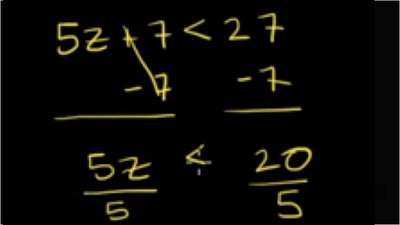 5z + 7 < 27
- 7 - 7
5z < 20
5 5